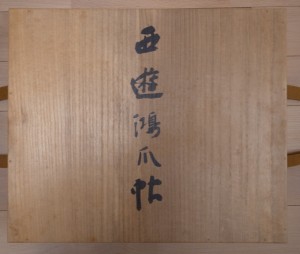 西遊鴻爪帖